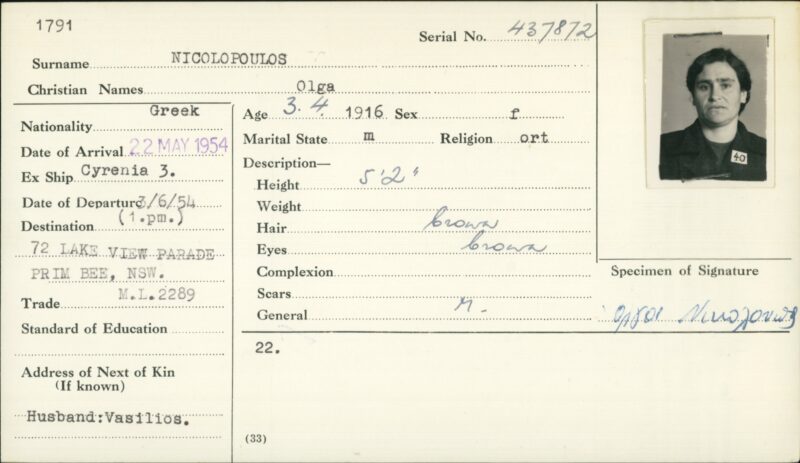 1791
Serial No. 437872
Surname NICOLOPOULOS
Christian Names Olga
Nationality Greek
Date of Arrival 22 MAY 1954
Ex Ship Cyrenia 3.
Date of Departure 3/6/54
(1.pm.)
Destination
72 LAKE VIEW PARADE
PRIM BEE, NSW.
Trade M.L.2289
Standard of Education
Address of Next of Kin
(If known)
Husband:Vasilios.
Age 3.4. 1916 Sex f
Marital State m Religion ort
Description—
Height 5'2"
Weight
Hair brown
Eyes brown
Complexion
Scars
General n.
22.
(33)
40
Specimen of Signature